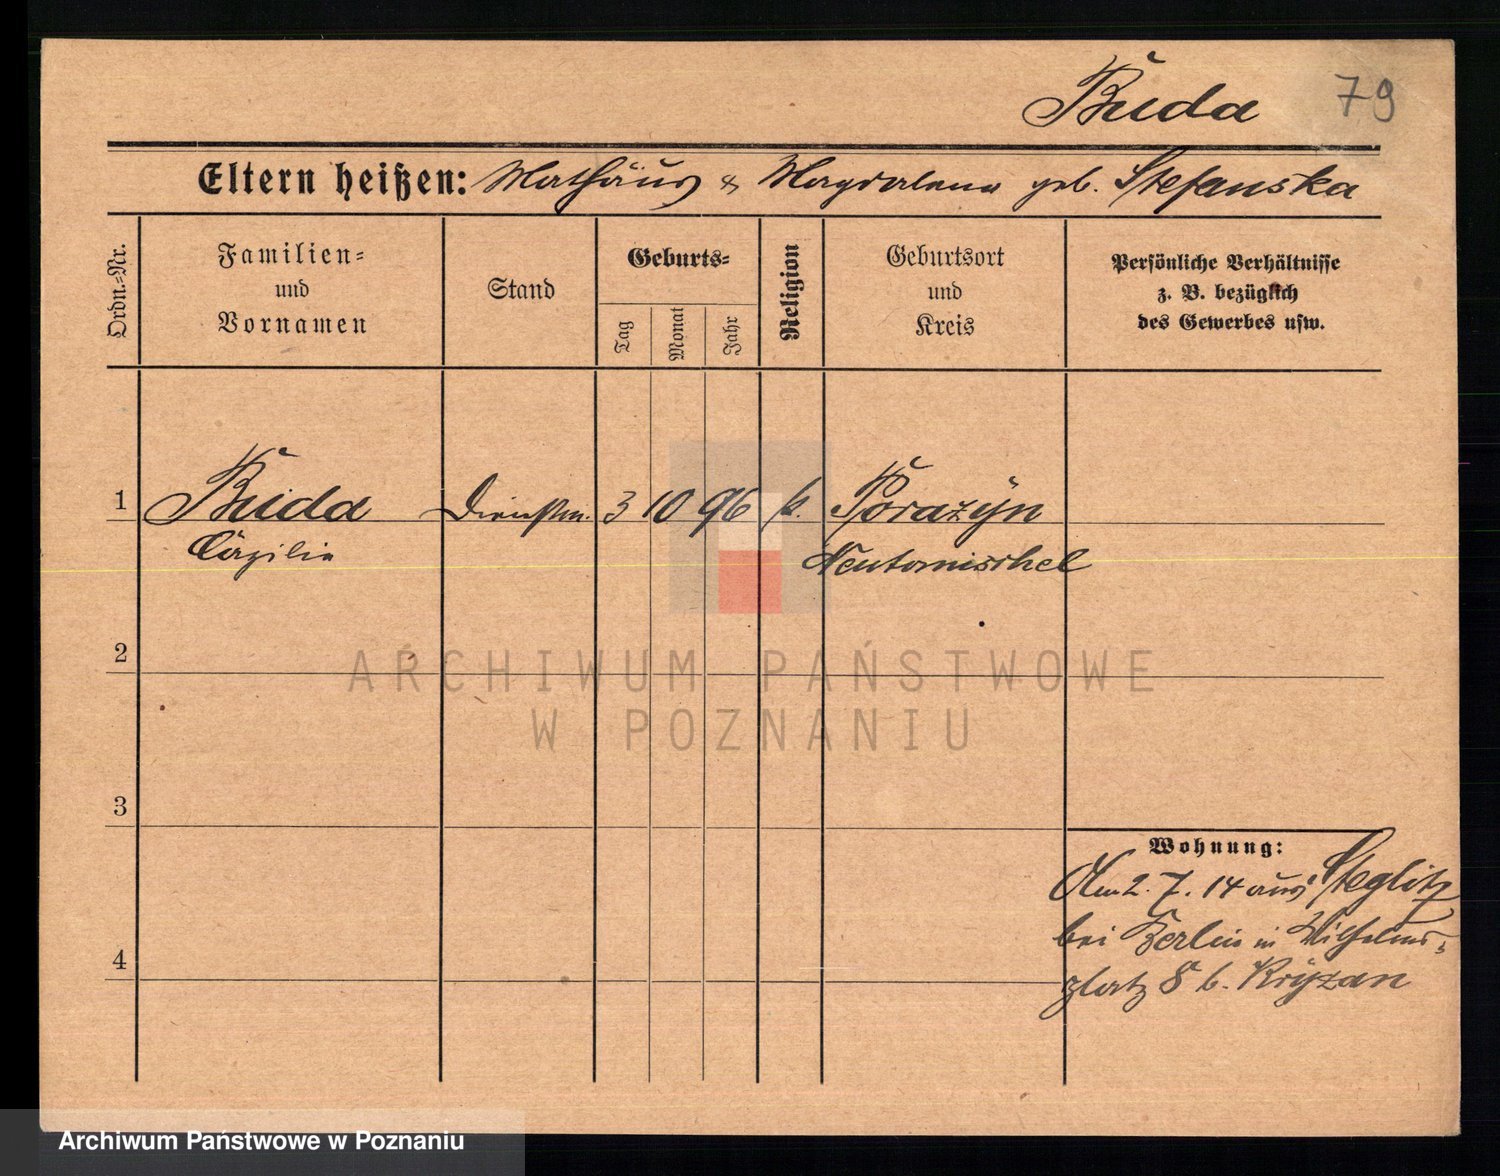 Buda 79
Eltern heißen: Mathäus & Magdalena geb. Stefanska
Ordn.-Nr.
Familien-
und
Vornamen
Stand
Geburts-
Tag
Monat
Jahr
Religion
Geburtsort
und
Kreis
Persönliche Verhältnisse
z. B. bezüglich
des Gewerbes usw.
1 Buda Dienstm. 3 10 96 k. Porazyn
Cäzilie Neutomischel
2
ARCHIWUM PAŃSTWOWE
W POZNANIU
3
Wohnung:
Am 2. 7. 14 aus Steglitz
bei Berlin in Wilhelms-
4
platz 8 b. Kryzan
Archiwum Państwowe w Poznaniu